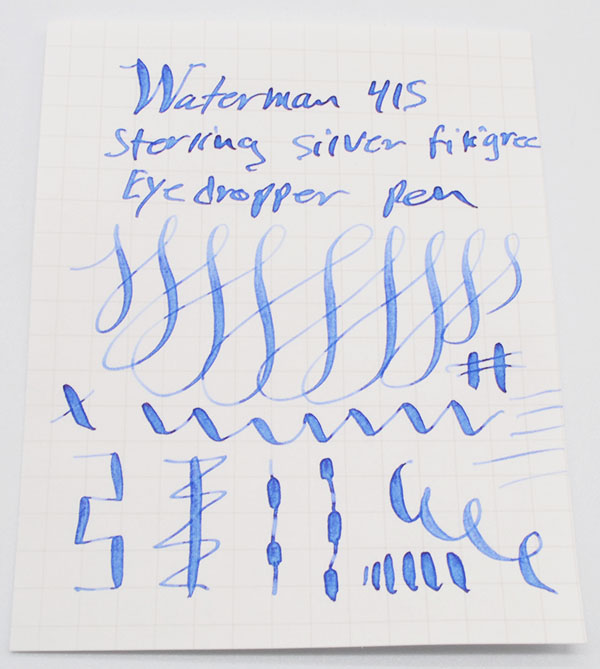 Waterman 41S
Sterling silver filigree
Eyedropper pen